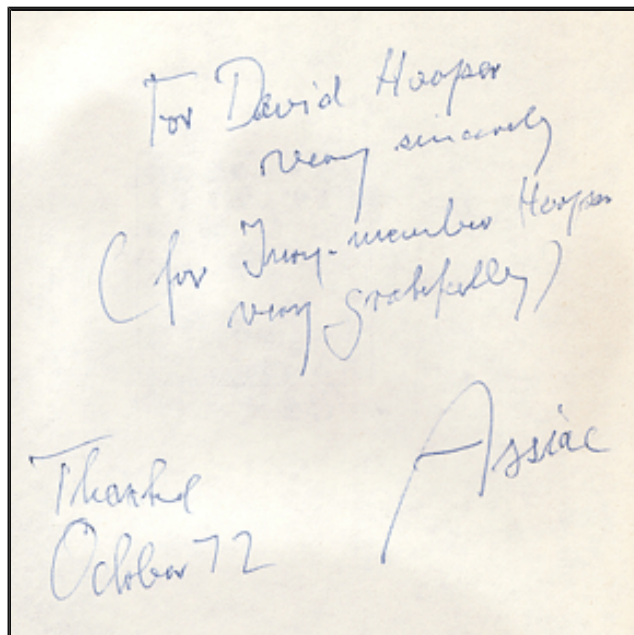 For David Hooper
very sincerely
(for Jury-member Hooper
very gratefully)
Assiac
Thanked
October 72